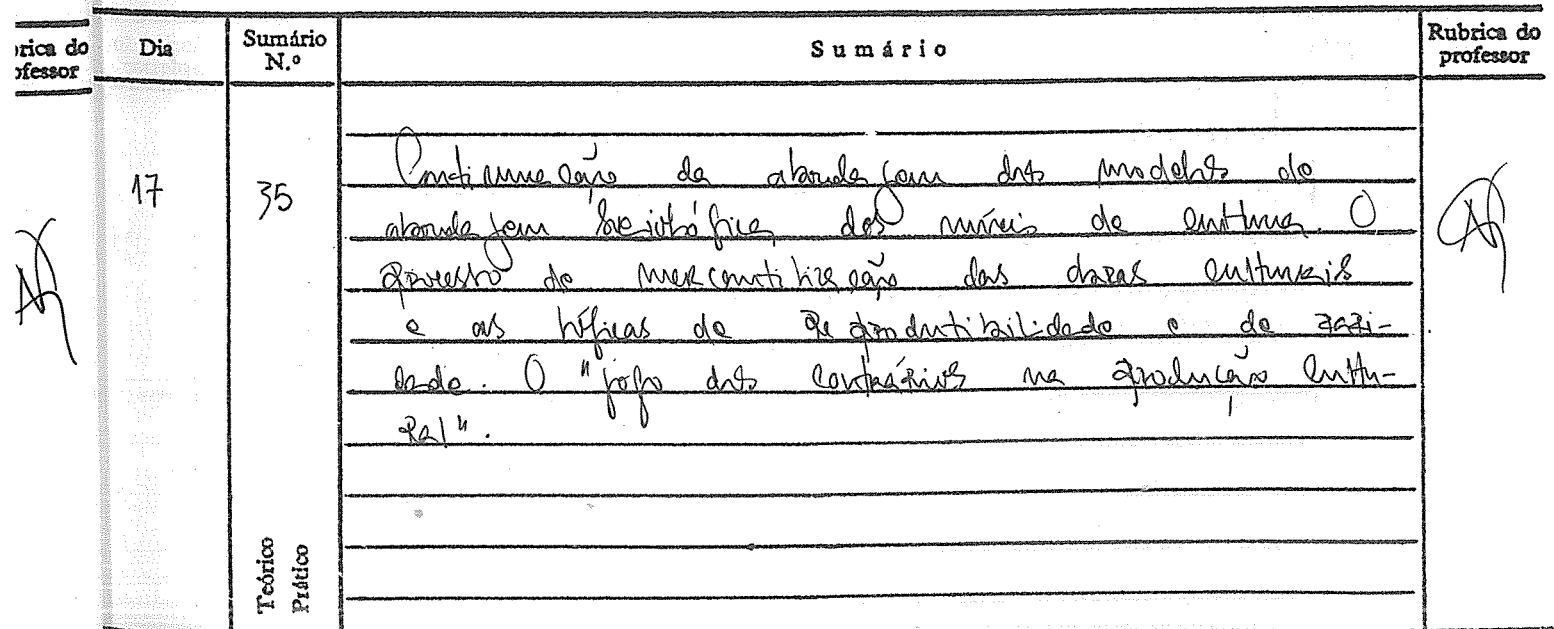 rica do
ofessor
Dia
Sumário
N.º
Sumário
Rubrica do
professor
17
35
Continuação da abordagem dos modelos de
abordagem sociológica dos níveis de cultura. O
processo de mercantilização das obras culturais
e as lógicas de reprodutibilidade e de rari-
dade. O "jogo dos contrários na produção cultu-
ral".
Teórico
Prático